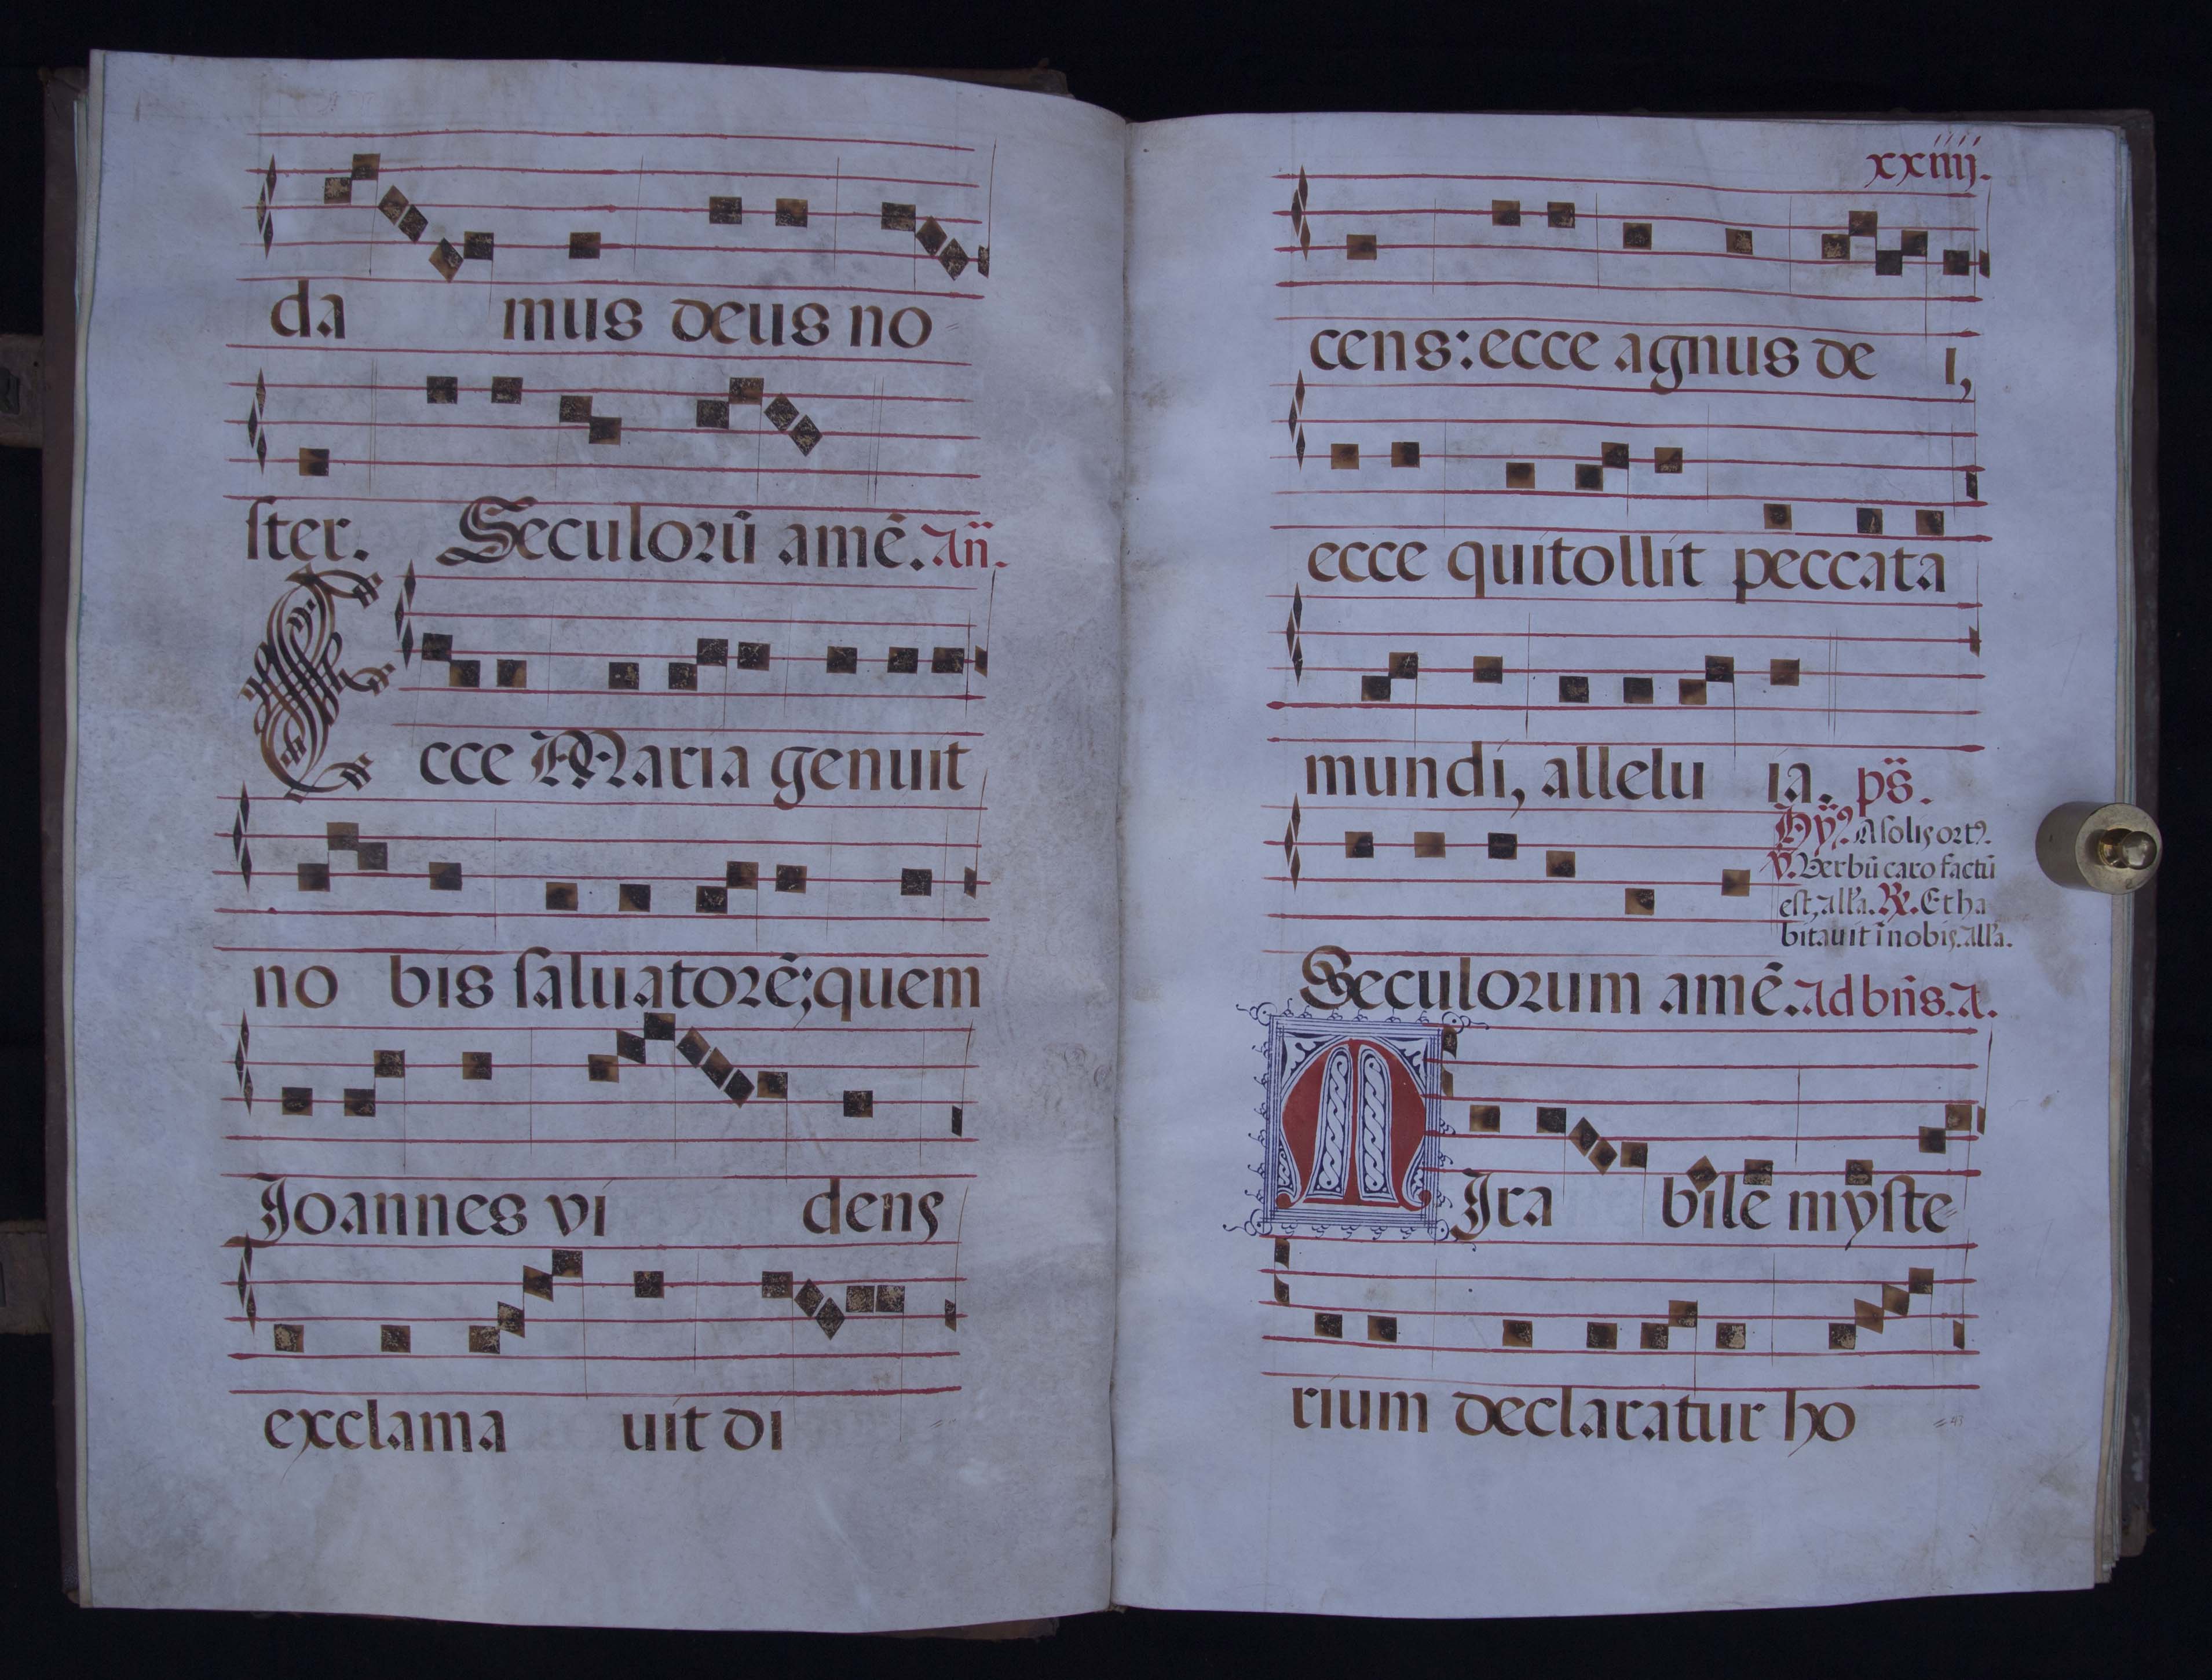 da mus deus no=
ster. Seculorū amē. Añ.
Ecce Maria genuit
no bis saluatorē; quem
Joannes vi dens
exclama uit di =
xxiiij.
cens: ecce agnus de i,
ecce qui tollit peccata
mundi, allelu ia. ps.
Hyꝰ. A solis ortꝰ.
℣. Verbū caro factū
est, all'a. ℟. Et ha
bitauit ī nobis. all'a.
Seculorum amē. Ad bñs. A.
MIra bile myste=
rium declaratur ho =